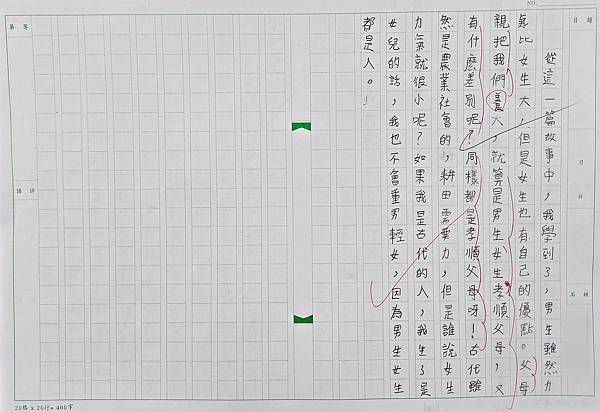 從這一篇故事中，我學到了，男生雖然力
氣比女生大，但是女生也有自己的優點。父母
親把我們養大，就算是男生女生孝順父母，又
有什麼差別呢？同樣都是孝順父母呀！古代雖
然是農業社會的，耕田需要力，但是誰說女生
力氣就很小呢？如果我是古代的人，我生了是
女兒的話，我也不會重男輕女，因為男生女生
都是人。
NO.
題目
月
日
姓名
第　筆
講評
20格 x 20行= 400字